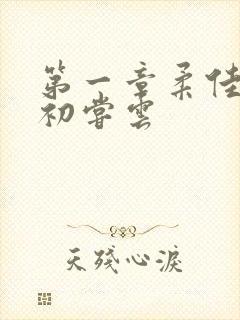 第一章柔佳
初尝云
天残心淚